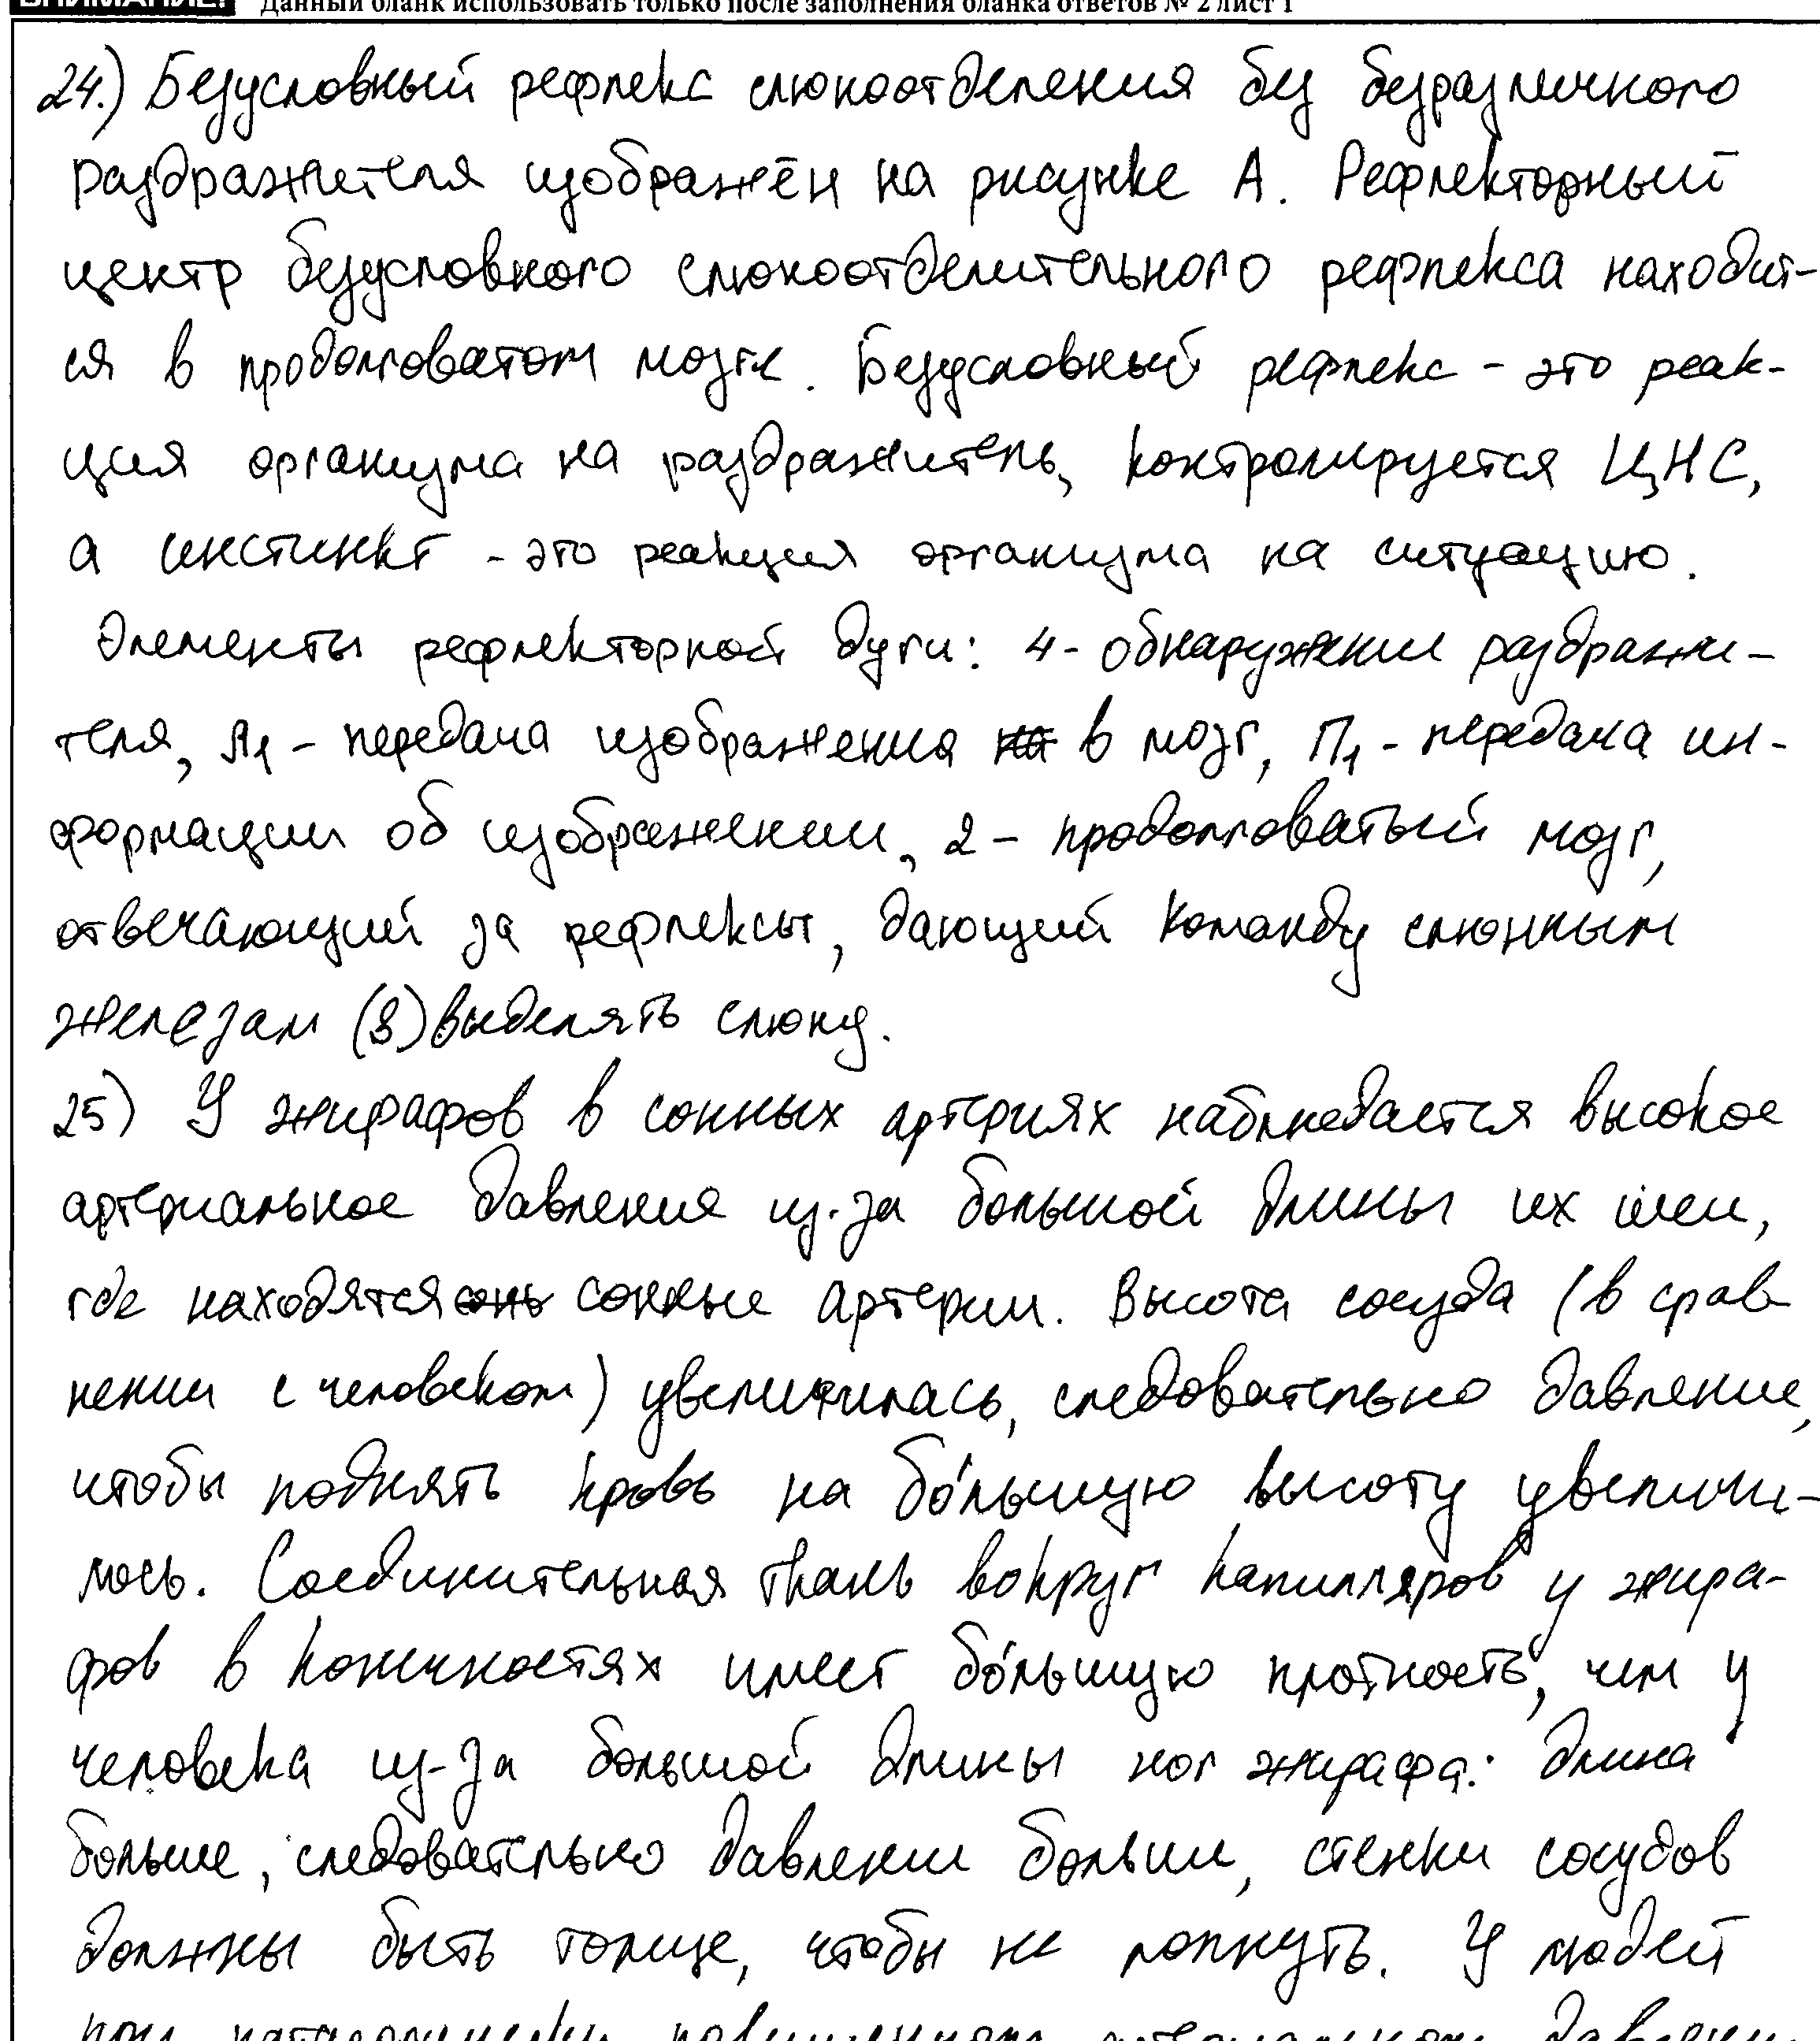 ВНИМАНИЕ! Данный бланк использовать только после заполнения бланка ответов № 2 лист 1
24.) Безусловный рефлекс слюноотделения без безразличного
раздражителя изображён на рисунке А. Рефлекторный
центр безусловного слюноотделительного рефлекса находит-
ся в продолговатом мозге. Безусловный рефлекс - это реак-
ция организма на раздражитель, контролируется ЦНС,
а инстинкт - это реакция организма на ситуацию.
Элементы рефлекторной дуги: 4 - обнаружении раздражи-
теля, Л1 - передача изображения в мозг, П1 - передача ин-
формации об изображении, 2 - продолговатый мозг,
отвечающий за рефлексы, дающий команду слюнным
железам (3) выделять слюну.
25) У жирафов в сонных артериях наблюдается высокое
артериальное давления из-за большой длины их шеи,
где находятся сонные артерии. Высота сосуда (в срав-
нении с человеком) увеличилась, следовательно давление,
чтобы поднять кровь на бо́льшую высоту увеличи-
лось. Соединительная ткань вокруг капилляров у жира-
фов в конечностях имеет бо́льшую плотность, чем у
человека из-за большой длины ног жирафа: длина
больше, следовательно давлении больши, стенки сосудов
должны быть толще, чтобы не лопнуть. У людей
при патологически повышенном артериальном давлени